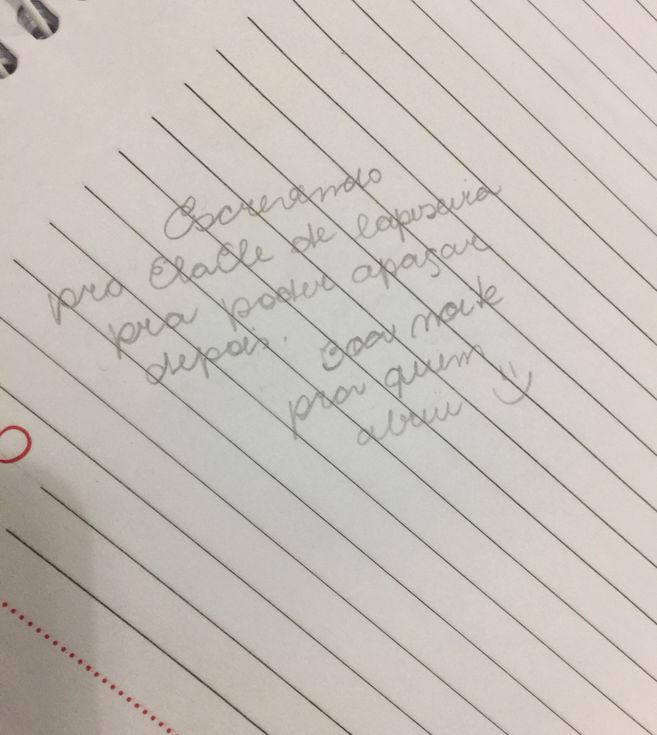 Escrevendo
pro de lapiseira
pra poder apagar
depois. Boa noite
pra quem
abriu :)